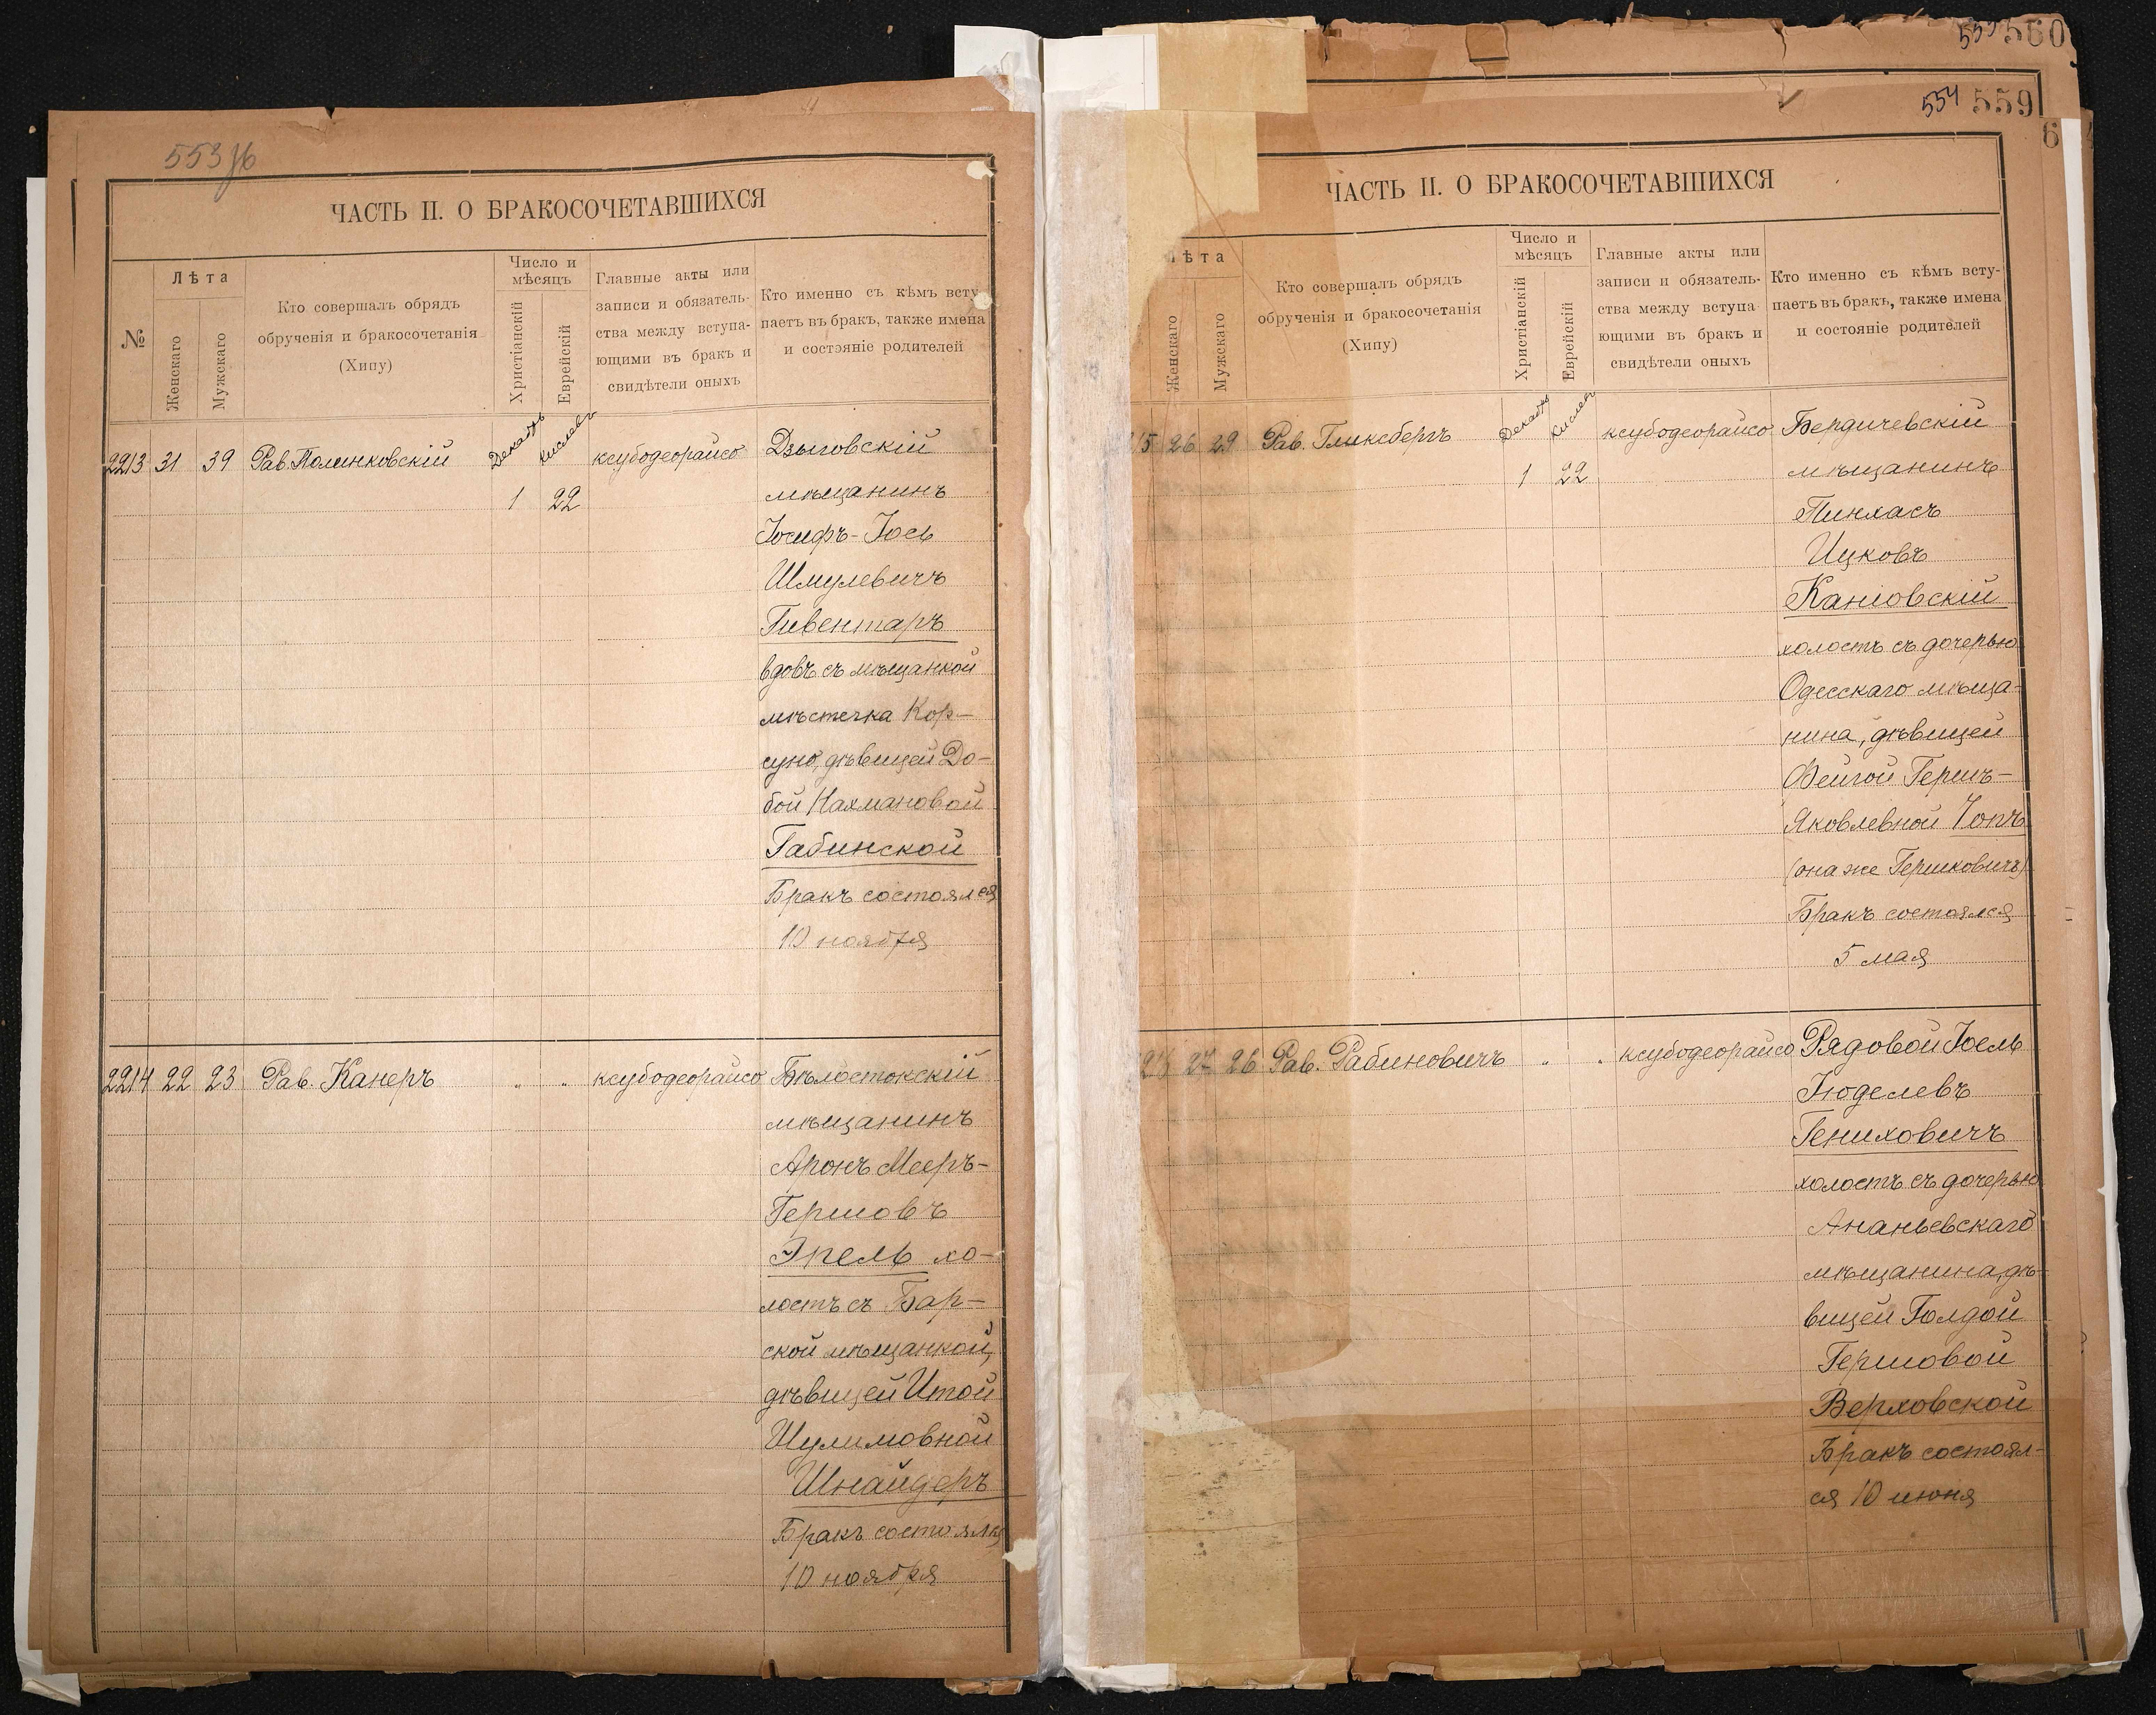 553 об
ЧАСТЬ II. О БРАКОСОЧЕТАВШИХСЯ
№
Лѣта
Женскаго
Мужскаго
Кто совершалъ обрядъ
обрученія и бракосочетанія
(Хипу)
Число и
мѣсяцъ
Христіанскій
Еврейскій
Главные акты или
записи и обязатель-
ства между вступа-
ющими въ бракъ и
свидѣтели оныхъ
Кто именно съ кѣмъ всту
паетъ въ бракъ, также имена
и состояніе родителей
2213 31 39 Рав. Полинковскій Декабрь Кислевъ ксубодеорайсо Дзыговскій
1 22 мѣщанинъ
Іосифъ-Іось
Шмулевичъ
Гивентаръ
вдовъ съ мѣщанкой
мѣстечка Кор-
суно, дѣвицей До-
бой Нахмановой
Габинской
Бракъ состоялся
10 ноября
2214 22 23 Рав. Канеръ " " ксубодеорайсо Бѣлостокскій
мѣщанинъ
Аронъ Мееръ-
Гершовъ
Эпель хо-
лостъ съ Бар-
ской мѣщанкой,
дѣвицей Итой
Шулимовной
Шнайдеръ
Бракъ состоялся
10 ноября
560
554 559
6
ЧАСТЬ II. О БРАКОСОЧЕТАВШИХСЯ
ѣта
Женскаго
Мужскаго
Кто совершалъ обрядъ
обрученія и бракосочетанія
(Хипу)
Число и
мѣсяцъ
Христіанскій
Еврейскій
Главные акты или
записи и обязатель-
ства между вступа
ющими въ бракъ и
свидѣтели оныхъ
Кто именно съ кѣмъ всту-
паетъ въ бракъ, также имена
и состояніе родителей
15 26 29 Рав. Гликсбергъ Декабрь Кислевъ ксубодеорайсо Бердичевскій
1 22 мѣщанинъ
Пинхасъ
Ицковъ
Каніовскій
холостъ съ дочерью
Одесскаго мѣща-
нина, дѣвицей
Фейгой Гершъ-
Яковлевной Чопъ
(она же Гершковичъ)
Бракъ состоялся
5 мая
216 27 26 Рав. Рабиновичъ " " ксубодеорайсо Рядовой Іоель
Іюделевъ
Гениховичъ
холостъ съ дочерью
Ананьевскаго
мѣщанина, дѣ-
вицей Голдой
Гершовой
Верховской
Бракъ состоял-
ся 10 июня